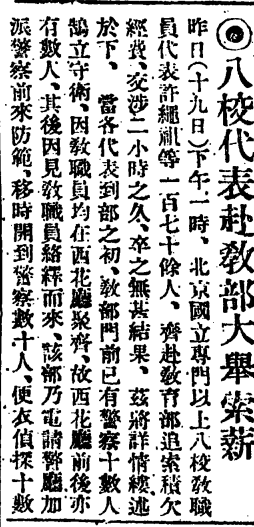 ◉八校代表赴教部大舉索薪
昨日(十九日)下午一時、北京國立專門以上八校教職
員代表許繩祖等一百七十餘人、齊赴教育部追索積欠
經費、交涉二小時之久、卒之無甚結果、茲將詳情縷述
於下、　當各代表到部之初、教部門前已有警察十數人
鵠立守衛、因教職員均在西花廳聚齊、故西花廳前後亦
有數人、其後因見教職員絡繹而來、該部乃電請警廳加
派警察前來防範、移時開到警察數十人、便衣偵探十數